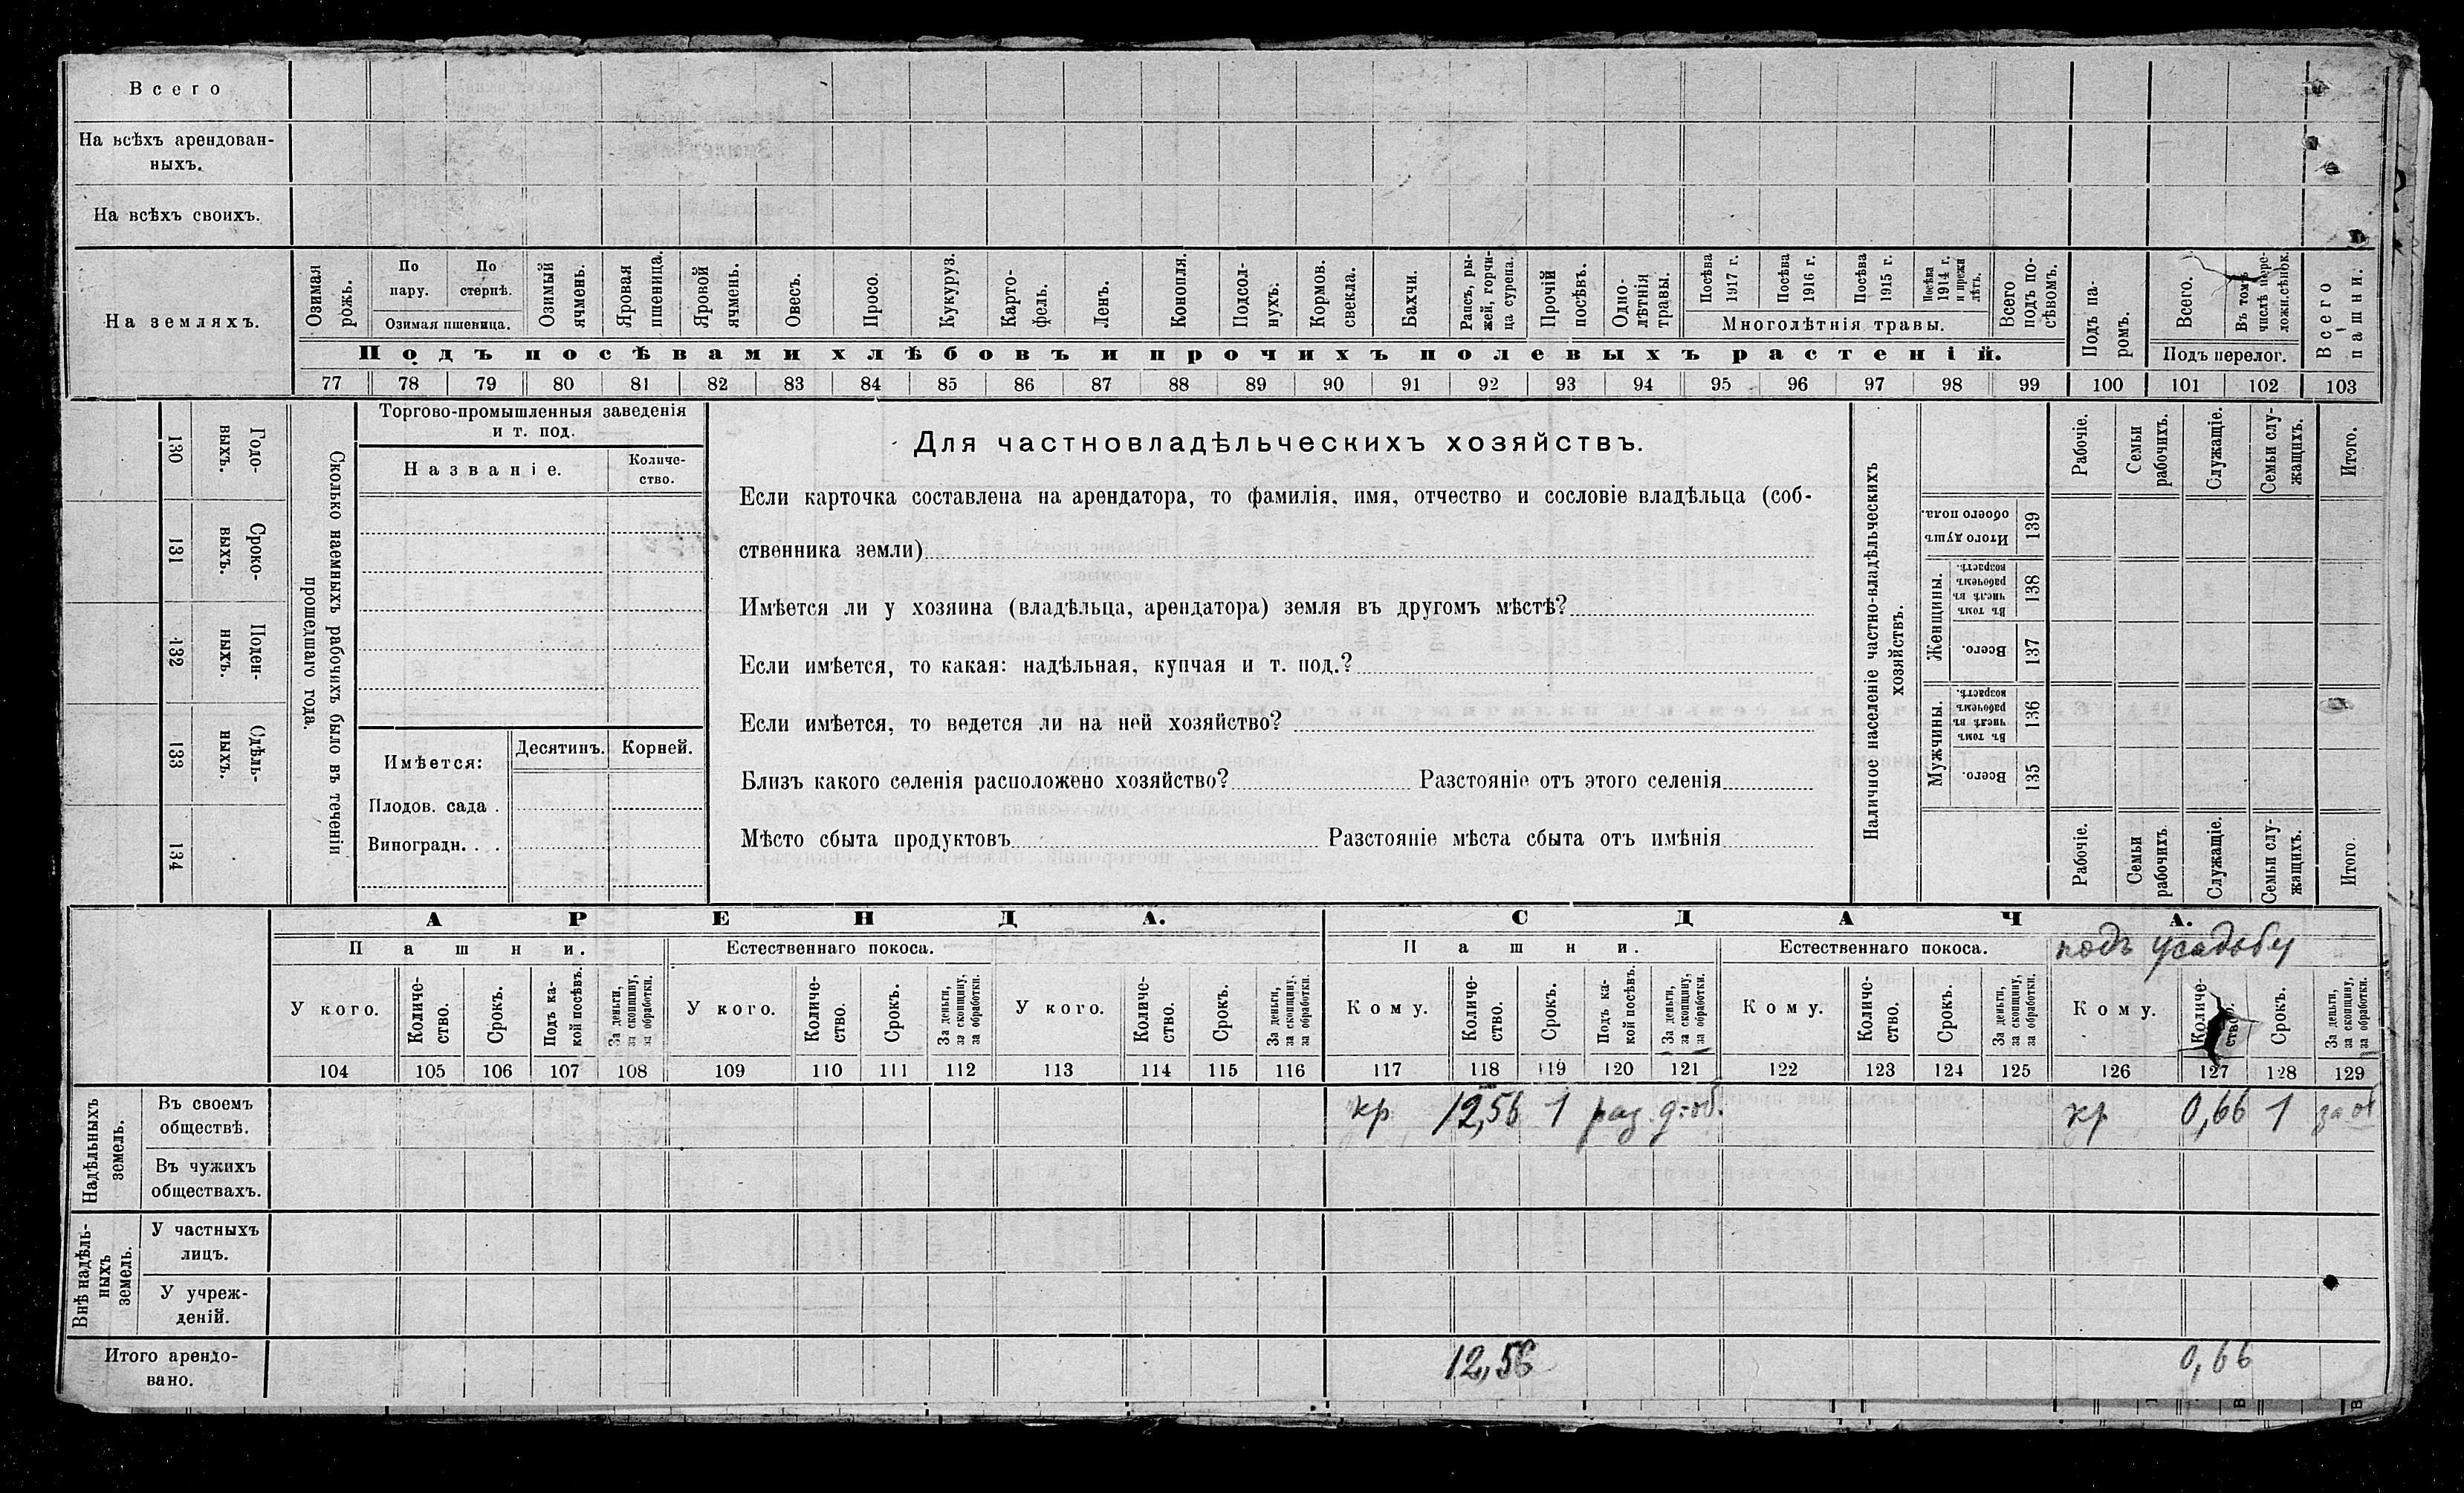 Всего
На всѣхъ арендован-
ныхъ.
На всѣхъ своихъ.
На земляхъ.
Озимая рожь.
По пару.
По стернѣ.
Озимая пшеница.
Озимый ячмень.
Яровая пшеница.
Яровой ячмень.
Овесъ.
Просо.
Кукуруз.
Карто-
фель.
Ленъ.
Конопля.
Подсол-
нухъ.
Кормов. свекла.
Бахчи.
Рапсъ, ры-
жей, горчи-
ца сурепа.
Прочій посѣвъ.
Одно-
лѣтнія травы.
Посѣва 1917 г.
Посѣва 1916 г.
Посѣва 1915 г.
Посѣва 1914 г. и прежн лѣтъ.
Многолѣтнія травы.
Всего подъ по-
сѣвомъ.
Подъ па-
ромъ.
Всего.
Въ томъ числѣ пере-
ложн.сѣнок.
Подъ перелог.
Всего пашни.
Подъ посѣвами хлѣбовъ и прочихъ полевыхъ растеній.
77 78 79 80 81 82 83 84 85 86 87 88 89 90 91 92 93 94 95 96 97 98 99 100 101 102 103
130 Годо-
выхъ.
131 Сроко-
выхъ.
132 Поден-
ныхъ.
133 Сдѣль-
ныхъ.
134
Сколько наемныхъ рабочихъ было въ теченіи
прошедшаго года.
Торгово-промышленныя заведенія
и т. под.
Названіе.
Количе-
ство.
Имѣется:
Десятинъ.
Корней.
Плодов. сада .
Виноградн. . .
Для частновладѣльческихъ хозяйствъ.
Если карточка составлена на арендатора, то фамилія, имя, отчество и сословіе владѣльца (соб-
ственника земли)
Имѣется ли у хозяина (владѣльца, арендатора) земля въ другомъ мѣстѣ?
Если имѣется, то какая: надѣльная, купчая и т. под.?
Если имѣется, то ведется ли на ней хозяйство?
Близъ какого селенія расположено хозяйство? Разстояніе отъ этого селенія
Мѣсто сбыта продуктовъ Разстояніе мѣста сбыта отъ имѣнія
Наличное населеніе частно-владѣльческихъ
хозяйствъ.
Рабочіе.
Семьи рабочихъ.
Служащіе.
Семьи слу-
жащихъ.
Итого.
Итого душъ обоего пола.
139
Женщины.
Въ томъ числѣ въ рабочемъ возрастѣ.
138
Всего.
137
Мужчины.
Въ томъ числѣ въ рабочемъ возрастѣ.
136
Всего.
135
Рабочіе.
Семьи рабочихъ.
Служащіе.
Семьи слу-
жащихъ.
Итого.
АРЕНДА.
СДАЧА.
Пашни.
Естественнаго покоса.
Пашни.
Естественнаго покоса.
подъ усадьбу
У кого.
Количе-
ство.
Срокъ.
Подъ ка-
кой посѣвъ.
За деньги, за скопщину, за обработки.
У кого.
Количе-
ство.
Срокъ.
За деньги, за скопщину, за обработки.
У кого.
Количе-
ство.
Срокъ.
За деньги, за скопщину, за обработки.
Кому.
Количе-
ство.
Срокъ.
Подъ ка-
кой посѣвъ.
За деньги, за скопщину, за обработки.
Кому.
Количе-
ство.
Срокъ.
За деньги, за скопщину, за обработки.
Кому.
Количе-
ство.
Срокъ.
За деньги, за скопщину, за обработки.
104 105 106 107 108 109 110 111 112 113 114 115 116 117 118 119 120 121 122 123 124 125 126 127 128 129
Надѣльныхъ земель.
Въ своемъ
обществѣ.
кр 12,56 1 раз. кр 0,66 1
Въ чужихъ
обществахъ.
Внѣ надѣль-
ныхъ земель.
У частныхъ
лицъ.
У учреж-
деній.
Итого арендо-
вано.
12,56 0,66